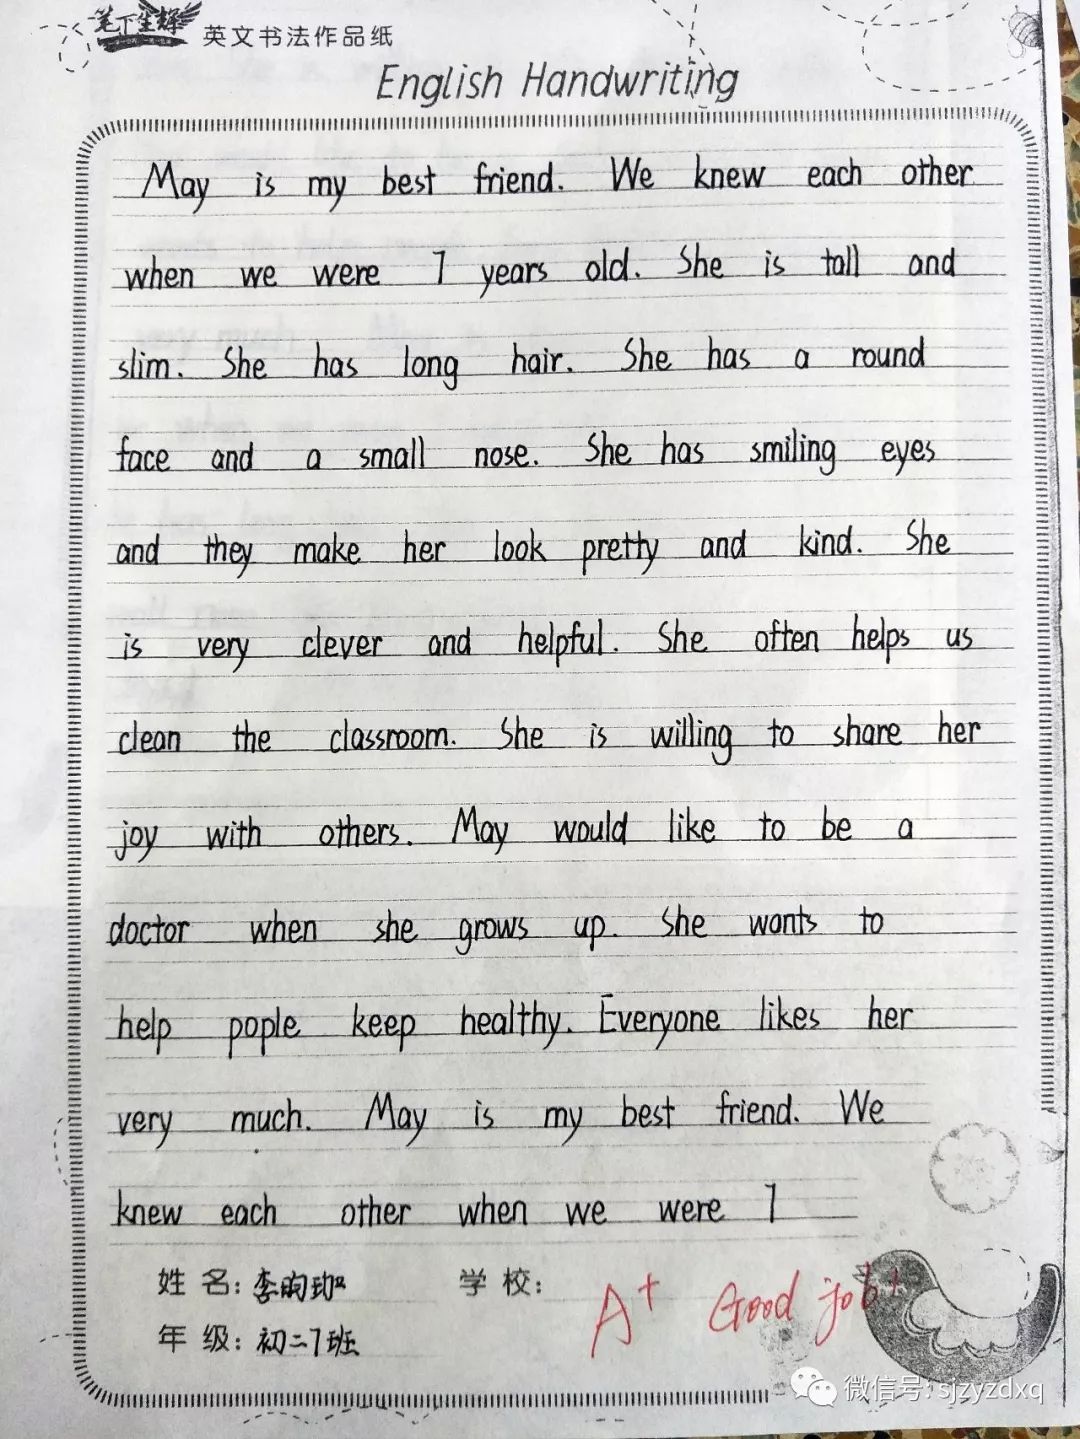 笔下生辉 英文书法作品纸
English Handwriting
May is my best friend. We knew each other
when we were 7 years old. She is tall and
slim. She has long hair. She has a round
face and a small nose. She has smiling eyes
and they make her look pretty and kind. She
is very clever and helpful. She often helps us
clean the classroom. She is willing to share her
joy with others. May would like to be a
doctor when she grows up. She wants to
help pople keep healthy. Everyone likes her
very much. May is my best friend. We
knew each other when we were 7
姓 名: 李昀珈 学 校:
年 级: 初二7班
A+ Good job!
微信号: sjzyzdxq